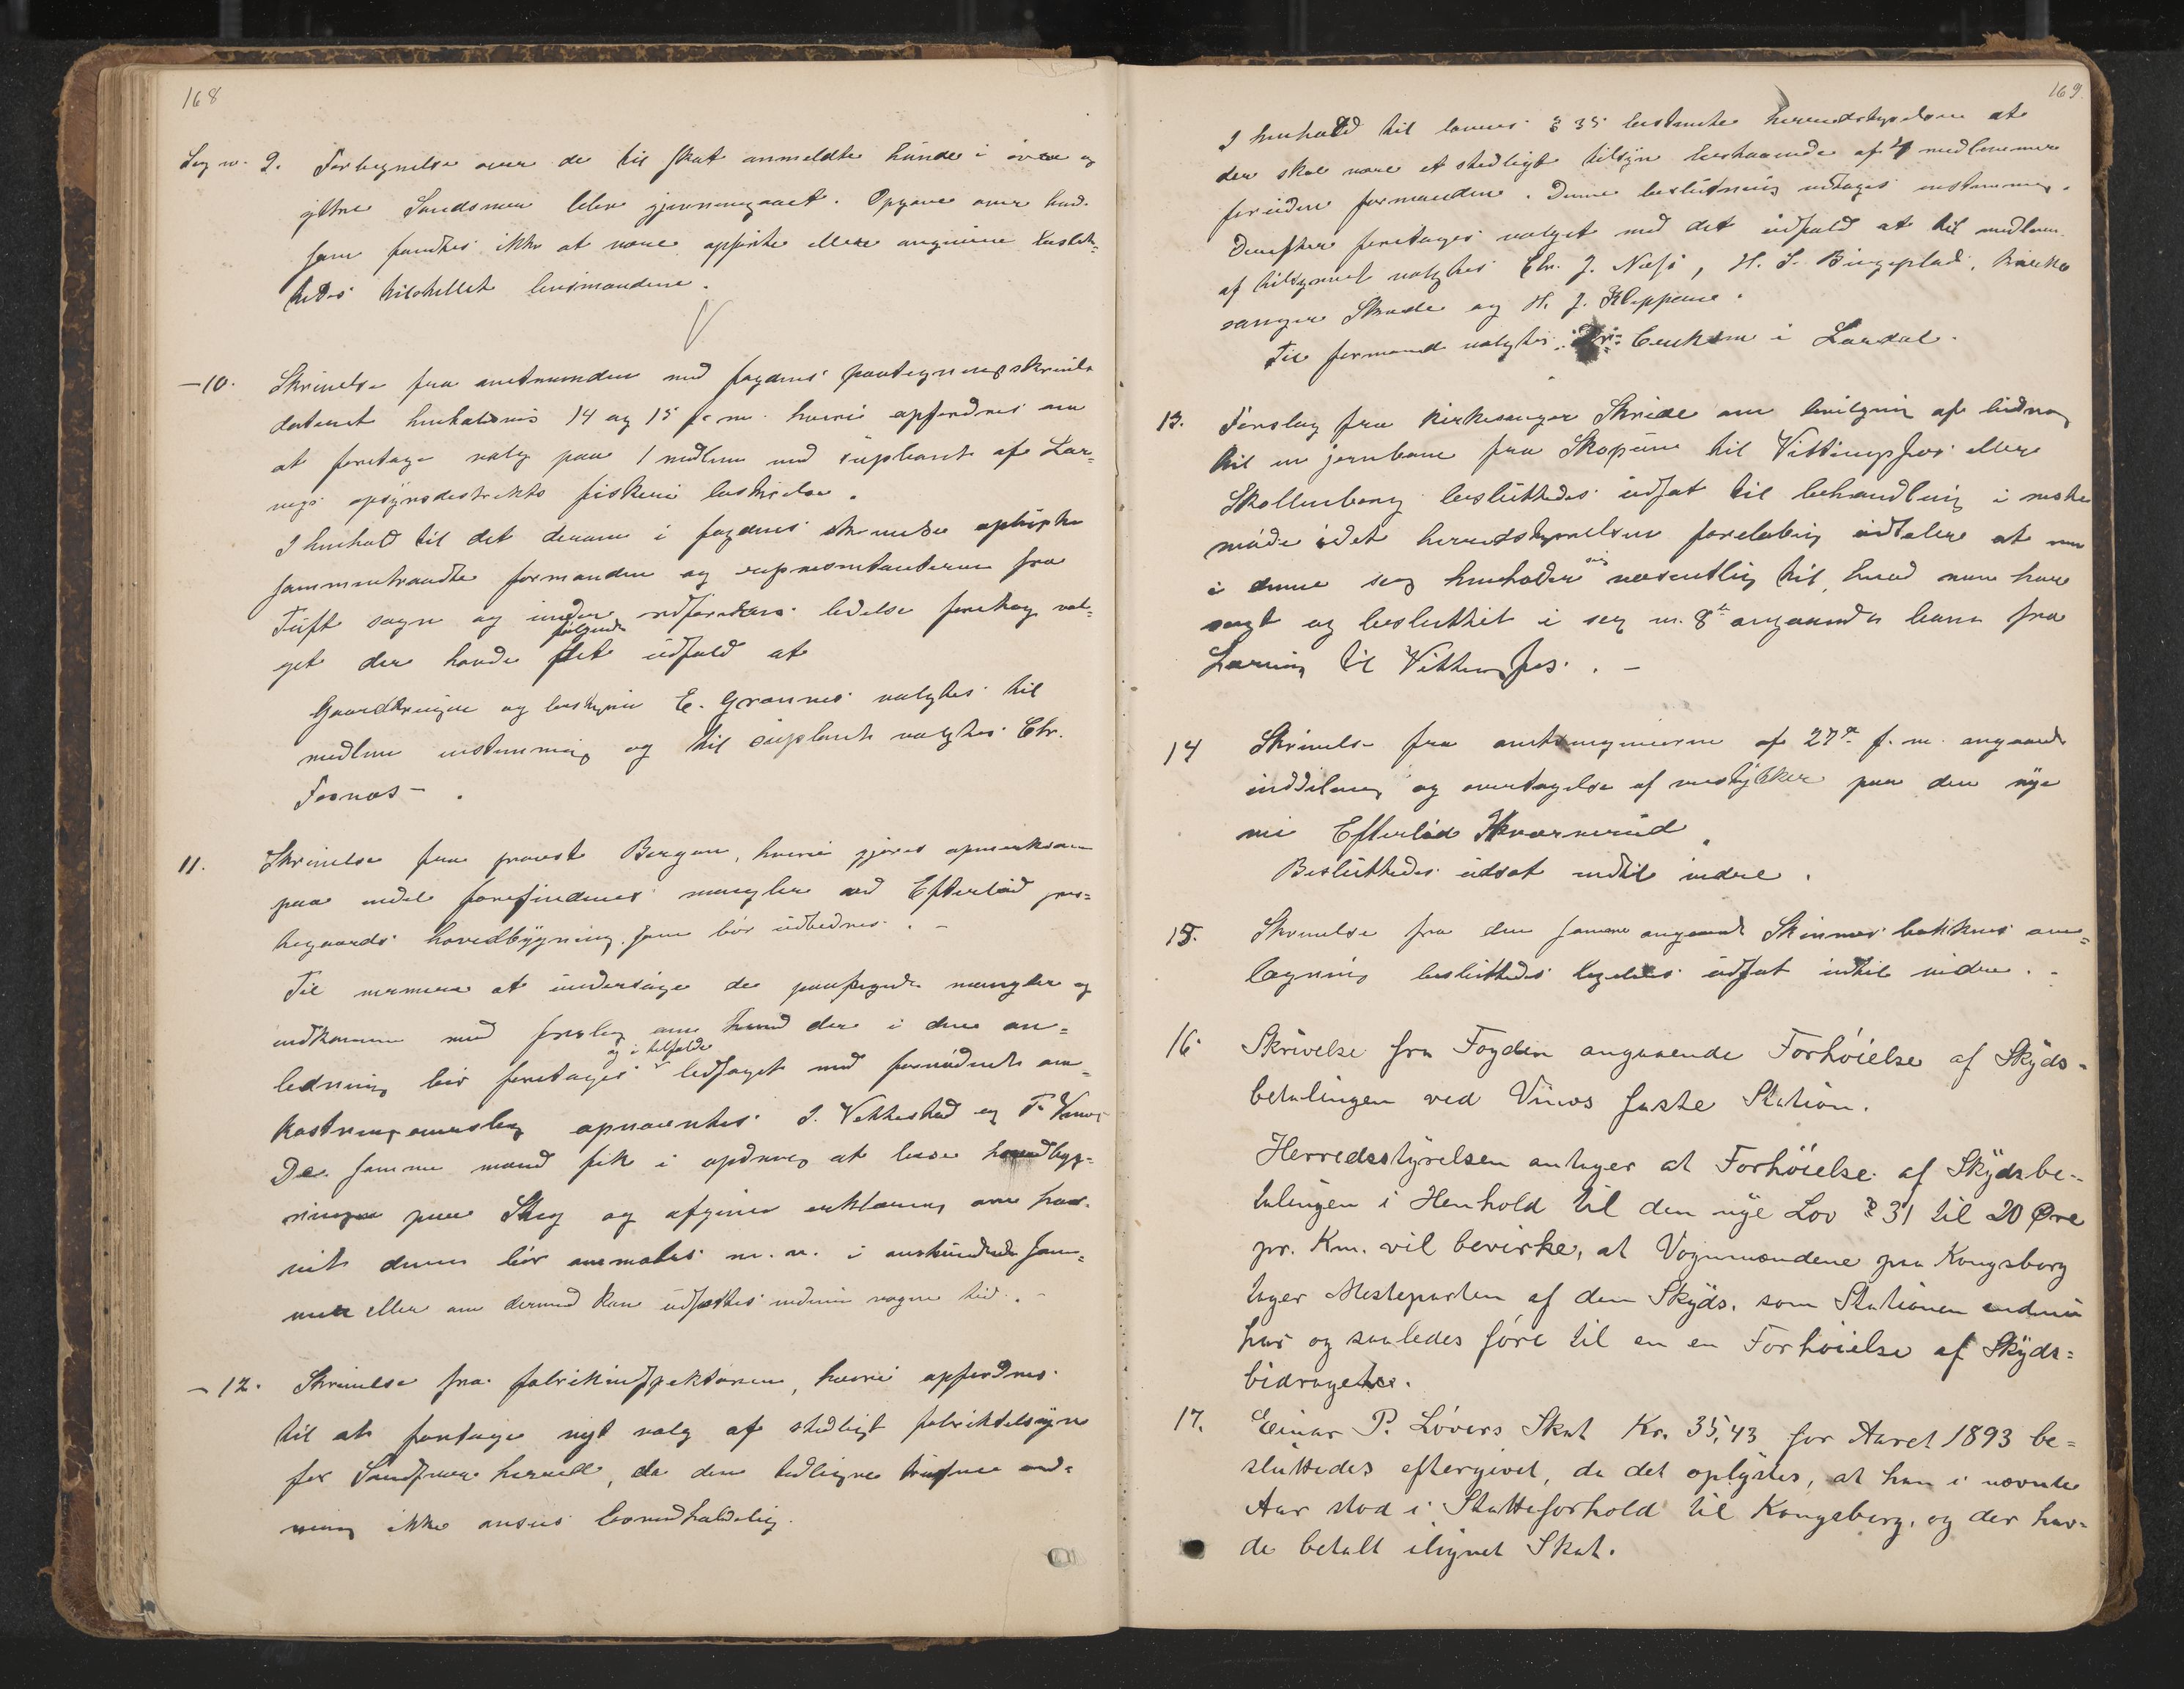 168
Sag nr. 9. Fortegnelse over de til skat anmeldte hunde i øvre og
ytre Sandsvær blev gjennemgaaet. Opgave over hund.
som fandtes ikke at være opførte eller angivne beslut=
tedes tilstillet lensmændene.
– 10. Skrivelse fra amtmanden med fogdens paategningsskrivelse
dateret henholdsvis 14 og 15 f. m. hvori opfordres om
at foretage valg paa 1 medlem med supleant af Laa=
gens opsynsdistrikts fiskeri bestyrelse.
I henhold til det derom i fogdens skrivelse oplyste
sammentraadte formanden og repræsentanterne fra
Tuft sogn og under ordførerens ledelse foretog val=
følgende
get der havde det udfald at
Gaardbruger og E. Grønnes valgtes til
medlem enstemmig og til supleant valgtes Chr.
Fosnæs – .
11. Skrivelse fra provst Bergan, hvori gjøres opmærksom
paa endel forefindende mangler ved Efteløt pres=
tegaards hovedbygning som bør udbedres. –
Til nærmere at undersøge de paapegede mangler og
indkomme med forslag om hvad der i den an=
og i tilfælde
ledning bør foretages ledsaget med fornødent om=
kostningsoverslag opnævntes I. Vettestad og T. Vinæs
De samme mænd fik i opdrag at bese hovedbyg=
ningen paa Skog og afgive erklæring om hvor=
vidt denne bør ommales m. v. i anstundende som=
mer eller om dermed kan udsættes endnu nogen tid. –
– 12. Skrivelse fra fabrikindspektøren, hvori opfordres
til at foretage nyt valg af stedligt fabriktilsyn
for Sandsvær herred, da den tidligere trufne ord=
ning ikke ansees lovmedholdelig.
169.
I henhold til lovens § 35 bestemte herredstyrelsen at
der skal være et stedligt tilsyn bestaaende af 4 medlemmer
foruden formanden. Denne beslutning toges enstemmig.
Derefter foretoges valget med det udfald at til medlem.
af tilsynet valgtes Chr. J. Næss, H. S. Bingeplad, kirke
sanger Skrede og H. J. Kleppane.
Til formand valgtes Dr. i Laurdal.
13. Forslag fra kirkesanger Skrede om bevilgning af bidrag
til en jernbane fra Skopum til Vittingfos eller
Skollenborg besluttedes udsat til behandling i næste
møde idet herredstyrelsen foreløbig udtaler at man
sig
i denne sag henholder væsentlig til, hvad man har
sagt og besluttet i sag nr. 8 angaaende bane fra
Larvig til Vittingfos. –
14 Skrivelse fra amtsingeniøren af 27de f. m. angaaende
inddeling og overtagelse af veistykker paa den nye
vei Efteløt Kværnerud.
Besluttedes udsat indtil videre.
15. Skrivelse fra den samme angaaende Skinnæs bakkens om=
lægning besluttedes ligeledes udsat indtil videre. –
16. Skrivelse fra Fogden angaaende Forhøielse af Skyds-
betalingen ved Vinæs faste Station.
Herredsstyrelsen antager at Forhøielse af Skydsbe-
talingen i Henhold til den nye Lov § 31 til 20 Øre
pr. Km. vil bevirke, at Vognmændene paa Kongsberg
tager Mesteparten af den Skyds, som Stationen endnu
har og saaledes føre til en en Forhøielse af Skyds=
bidragene.
17. Einar P. Løvers Skat Kr. 35,43 for Aaret 1893 be=
sluttedes eftergivet, da det oplystes, at han i nævnte
Aar stod i Skatteforhold til Kongsberg, og der hav-
de betalt ilignet Skat.